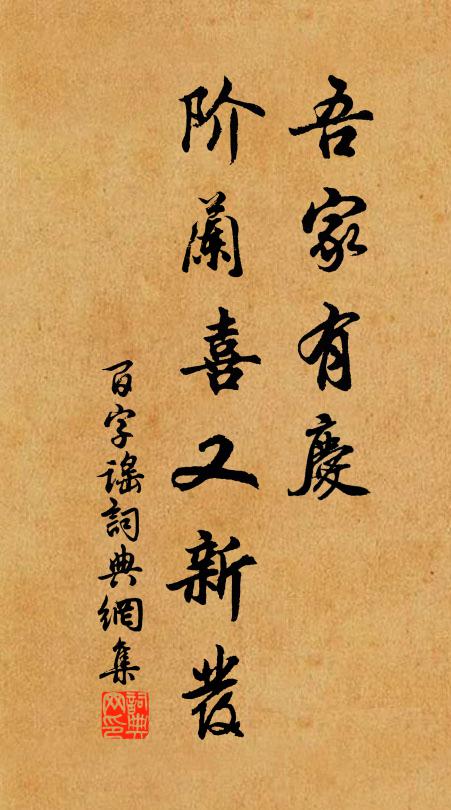 吾家有慶
阶蘭喜又新發
百字谣詞典網集
詞典网印